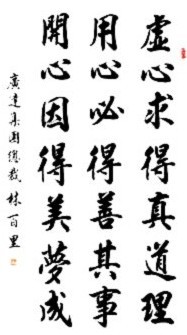 虛心求得真道理
用心必得善其事
開心因得美夢成
廣達集團總裁林百里